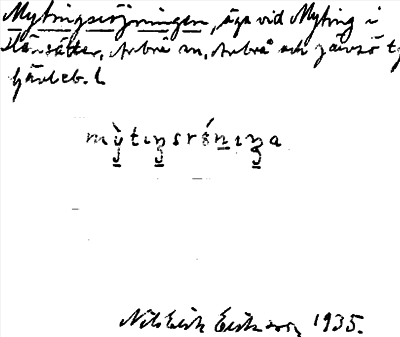 Mytingsröjningen, äga vid Myting i
Stensätter, Arbrå sn, Arbrå och Järvsö t
Gävleb. l.
mỳtıŋsrö́nıŋa
Nils Erik Erikson 1935.